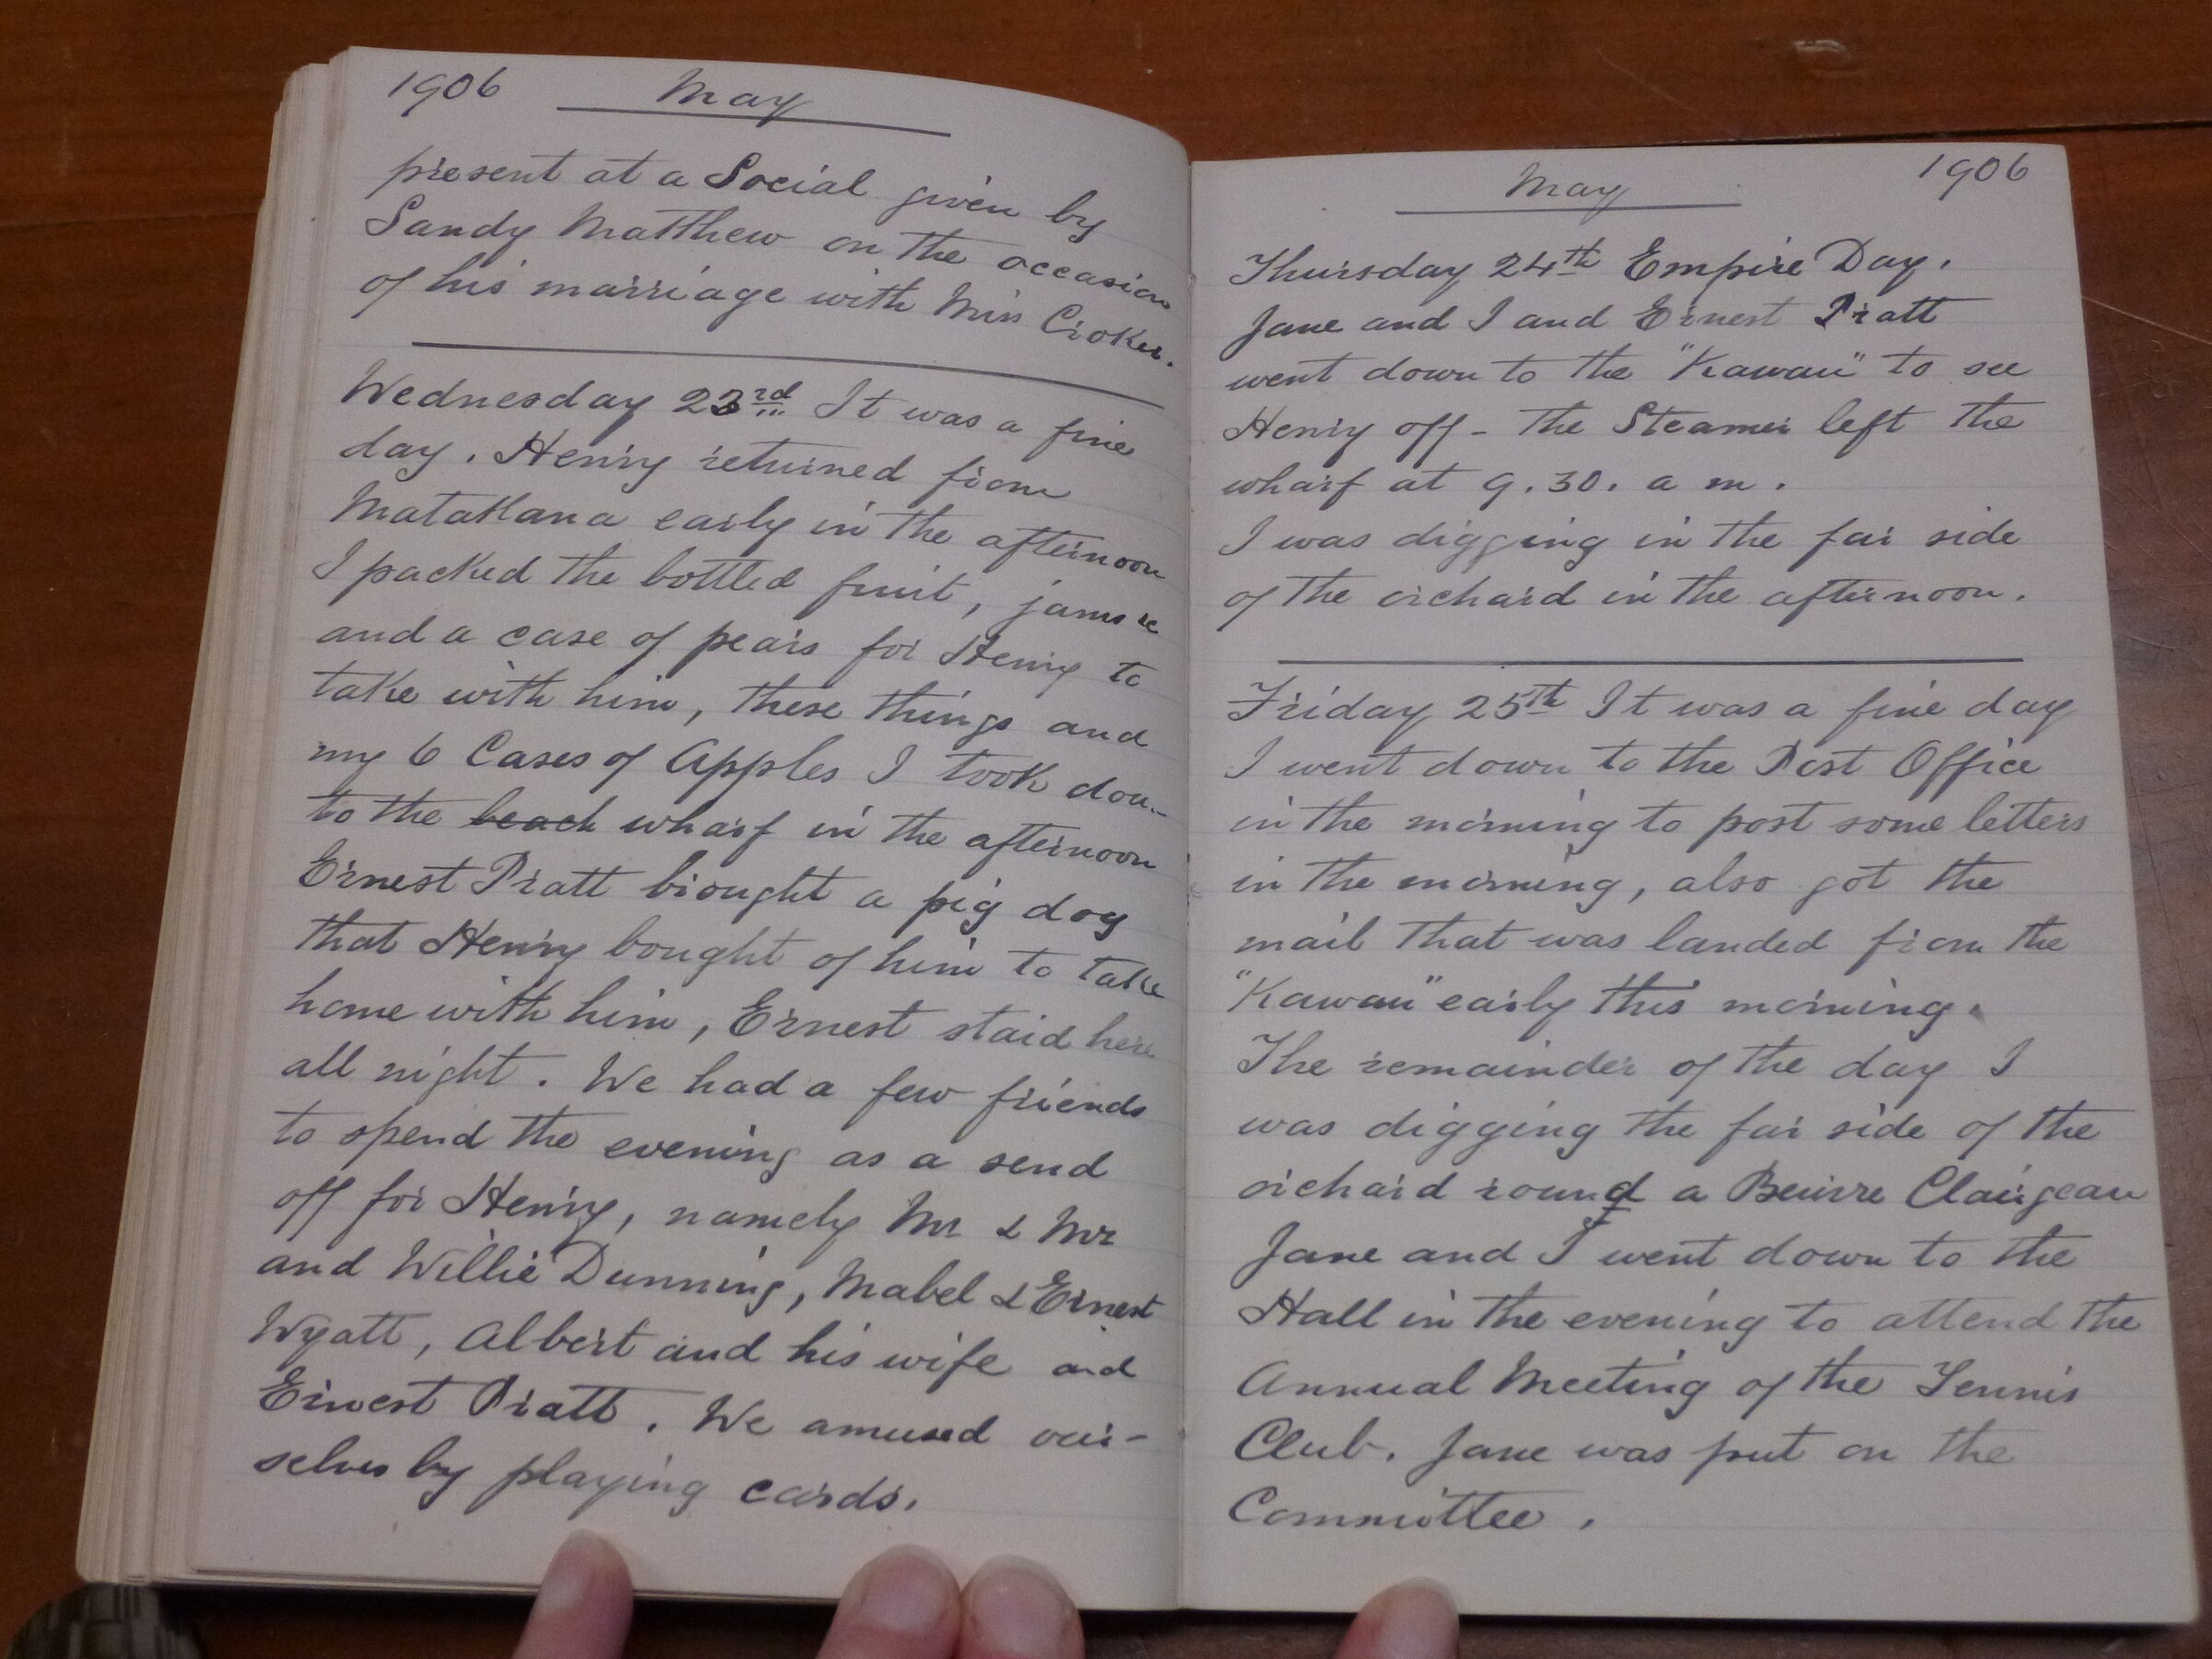 1906 May
present at a Social given by
Sandy Matthew on the occasion
of his marriage with Miss Croker.
Wednesday 23rd It was a fine
day. Henry returned from
Matakana early in the afternoon
I packed the bottled fruit, jams &c
and a case of pears for Henry to
take with him, these things and
my 6 Cases of Apples I took down
to the beach wharf in the afternoon
Ernest Pratt brought a pig dog
that Henry bought of him to take
home with him, Ernest staid here
all night. We had a few friends
to spend the evening as a send
off for Henry, namely Mr & Mrs
and Willie Dunning, Mabel & Ernest
Wyatt, Albert and his wife and
Ernest Pratt. We amused our-
selves by playing cards.
May 1906
Thursday 24th Empire Day.
Jane and I and Ernest Pratt
went down to the "Kawau" to see
Henry off - the Steamer left the
wharf at 9.30. a m.
I was digging in the far side
of the orchard in the afternoon.
Friday 25th It was a fine day
I went down to the Post Office
in the morning to post some letters
in the morning, also got the
mail that was landed from the
"Kawau" early this morning.
The remainder of the day I
was digging the far side of the
orchard round a Beurre Clairgeau
Jane and I went down to the
Hall in the evening to attend the
Annual Meeting of the Tennis
Club. Jane was put on the
Committee.